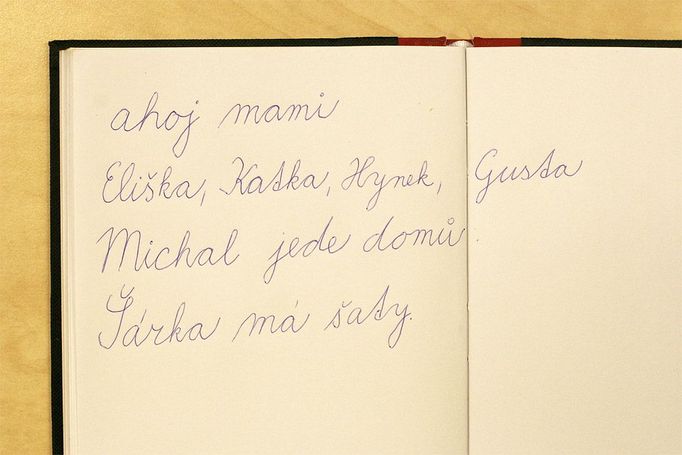 ahoj mami
Eliška, Katka, Hynek, Gusta
Michal jede domů.
Šárka má šaty.